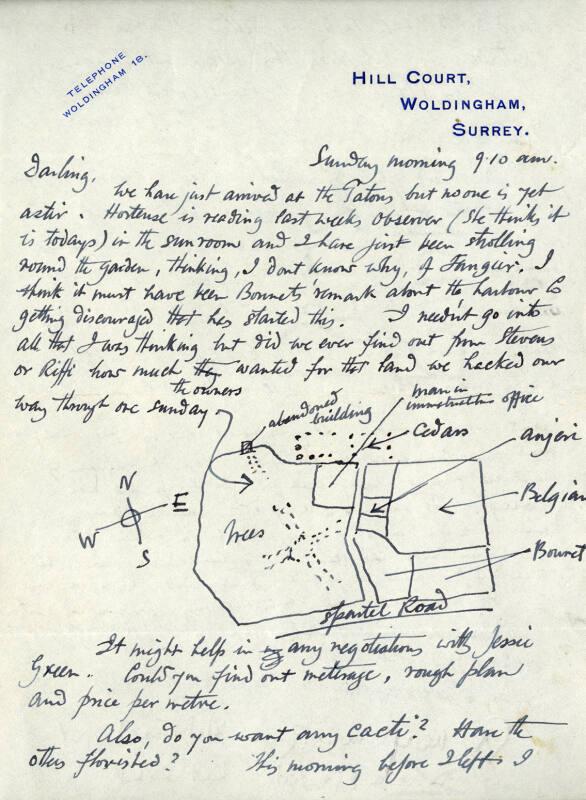 TELEPHONE
WOLDINGHAM 18.
HILL COURT,
WOLDINGHAM,
SURREY.
Sunday morning 9.10 am.
Darling,
We have just arrived at the Tatons but no one is yet
astir. Hortense is reading last weeks Observer (She thinks it
is todays) in the sunroom and I have just been strolling
round the garden, thinking, I dont know why, of Tangier. I
think it must have been Bonnets' remark about the harbour Co
getting discouraged that has started this. I needn't go into
all that I was thinking but did we ever find out from Stevens
or Riffi how much they wanted for that land we hacked our
the owners
way through one sunday
abandoned
building
man in
immigration office
Cedars
anjeri
Belgian
Bonnet
trees
N
E
W
S
Spartel Road
It might help in any negotiations with Jessie
Green. Could you find out metrage, rough plan
and price per metre.
Also, do you want any cacti? Have the
others flourished? This morning before I left I